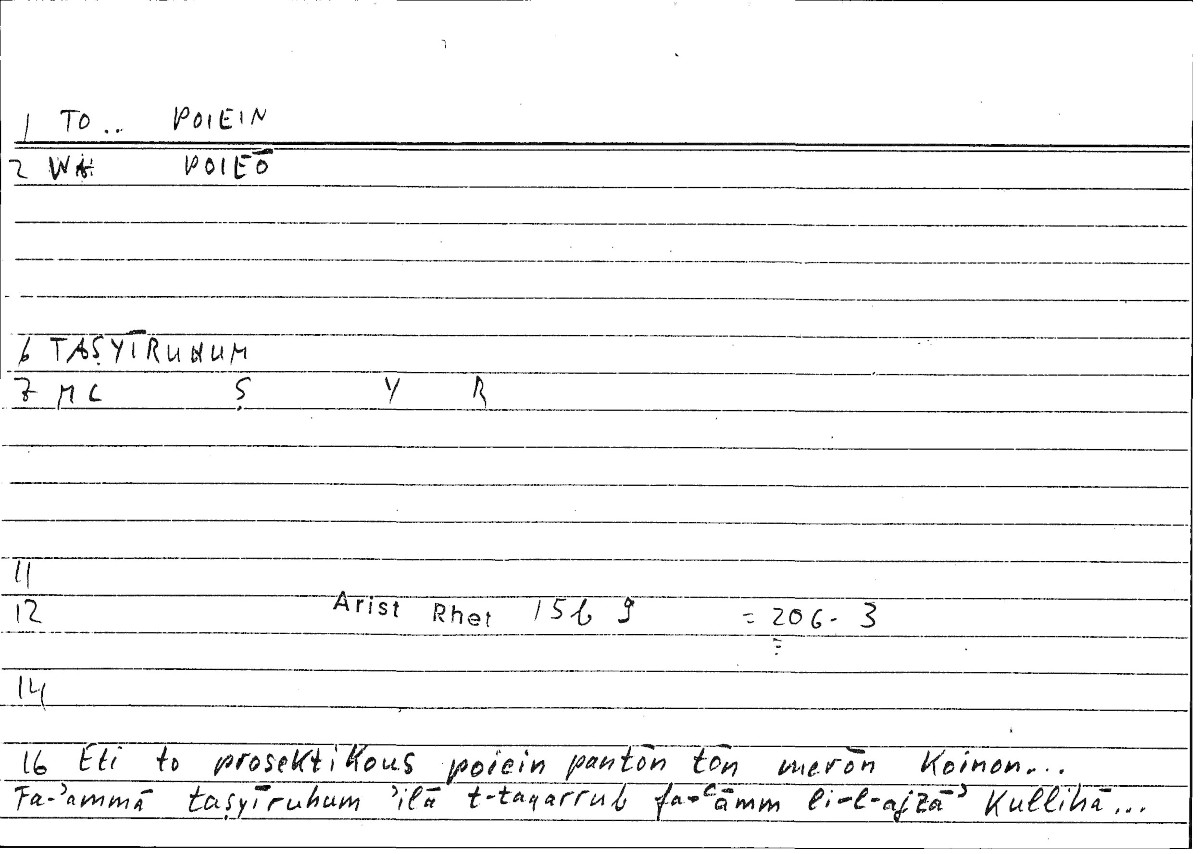 1 TO .. POIEIN
2 WH POIEŌ
6 TAṢYĪRUHUM
7 MC Ṣ Y R
11
12 Arist Rhet 156 9 = 206- 3
14
16 Eti to prosektikous poiein pantōn tōn merōn koinon...
Fa-ʾammā taṣyīruhum ʾilā t-taqarrub fa-ʿāmm li-l-ajzāʾ kullihā...